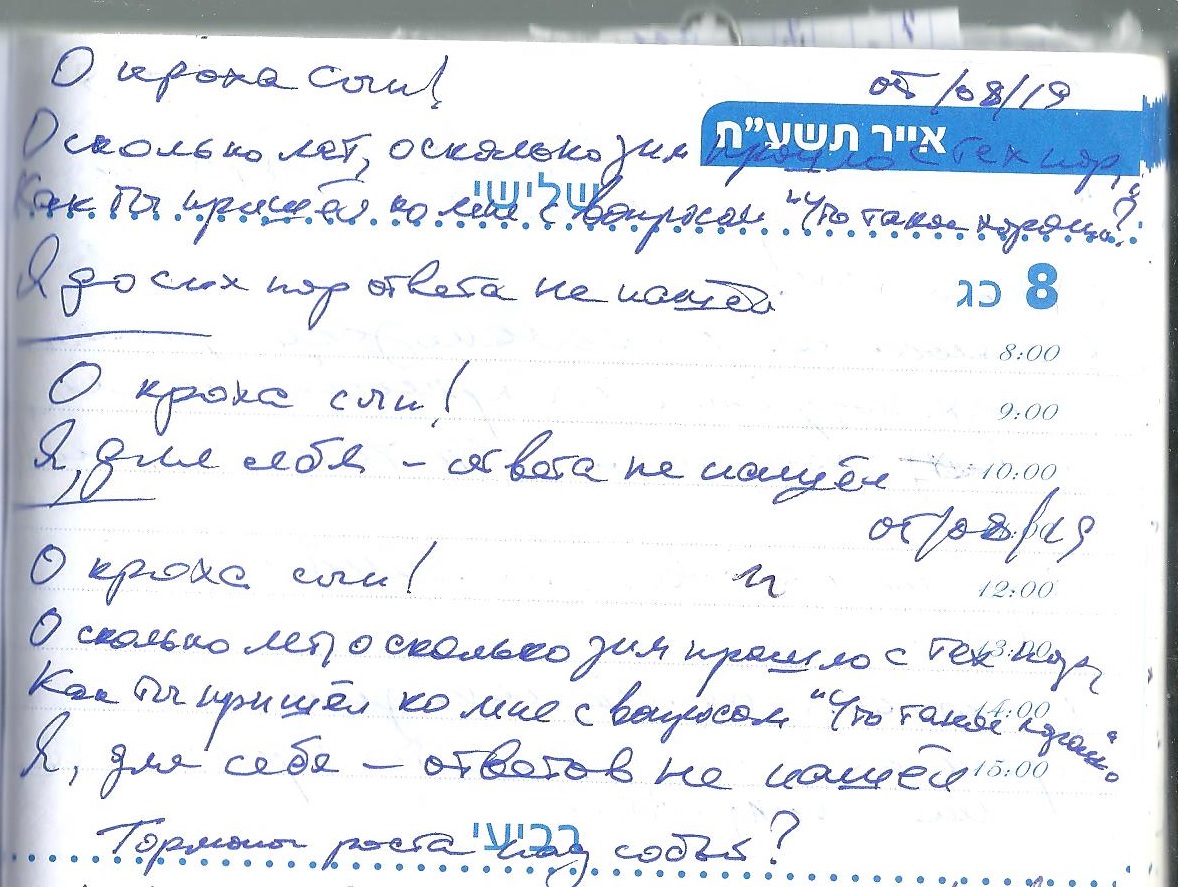 О кроха сын!
от /08/19
О сколько лет, о сколько зим прошло с тех пор,
אייר תשע"ח
Как ты пришёл ко мне с вопросом "Что такое хорошо?"
שלישי
Я до сих пор ответа не нашёл
8 כג
8:00
О кроха сын!
9:00
Я, для себя – ответа не нашёл
10:00
от/08/19
О кроха сын!
12:00
О сколько лет, о сколько зим прошло с тех пор,
13:00
Как ты пришёл ко мне с вопросом "Что такое хорошо"
14:00
Я, для себя – ответов не нашёл
15:00
רביעי
Гормоны роста